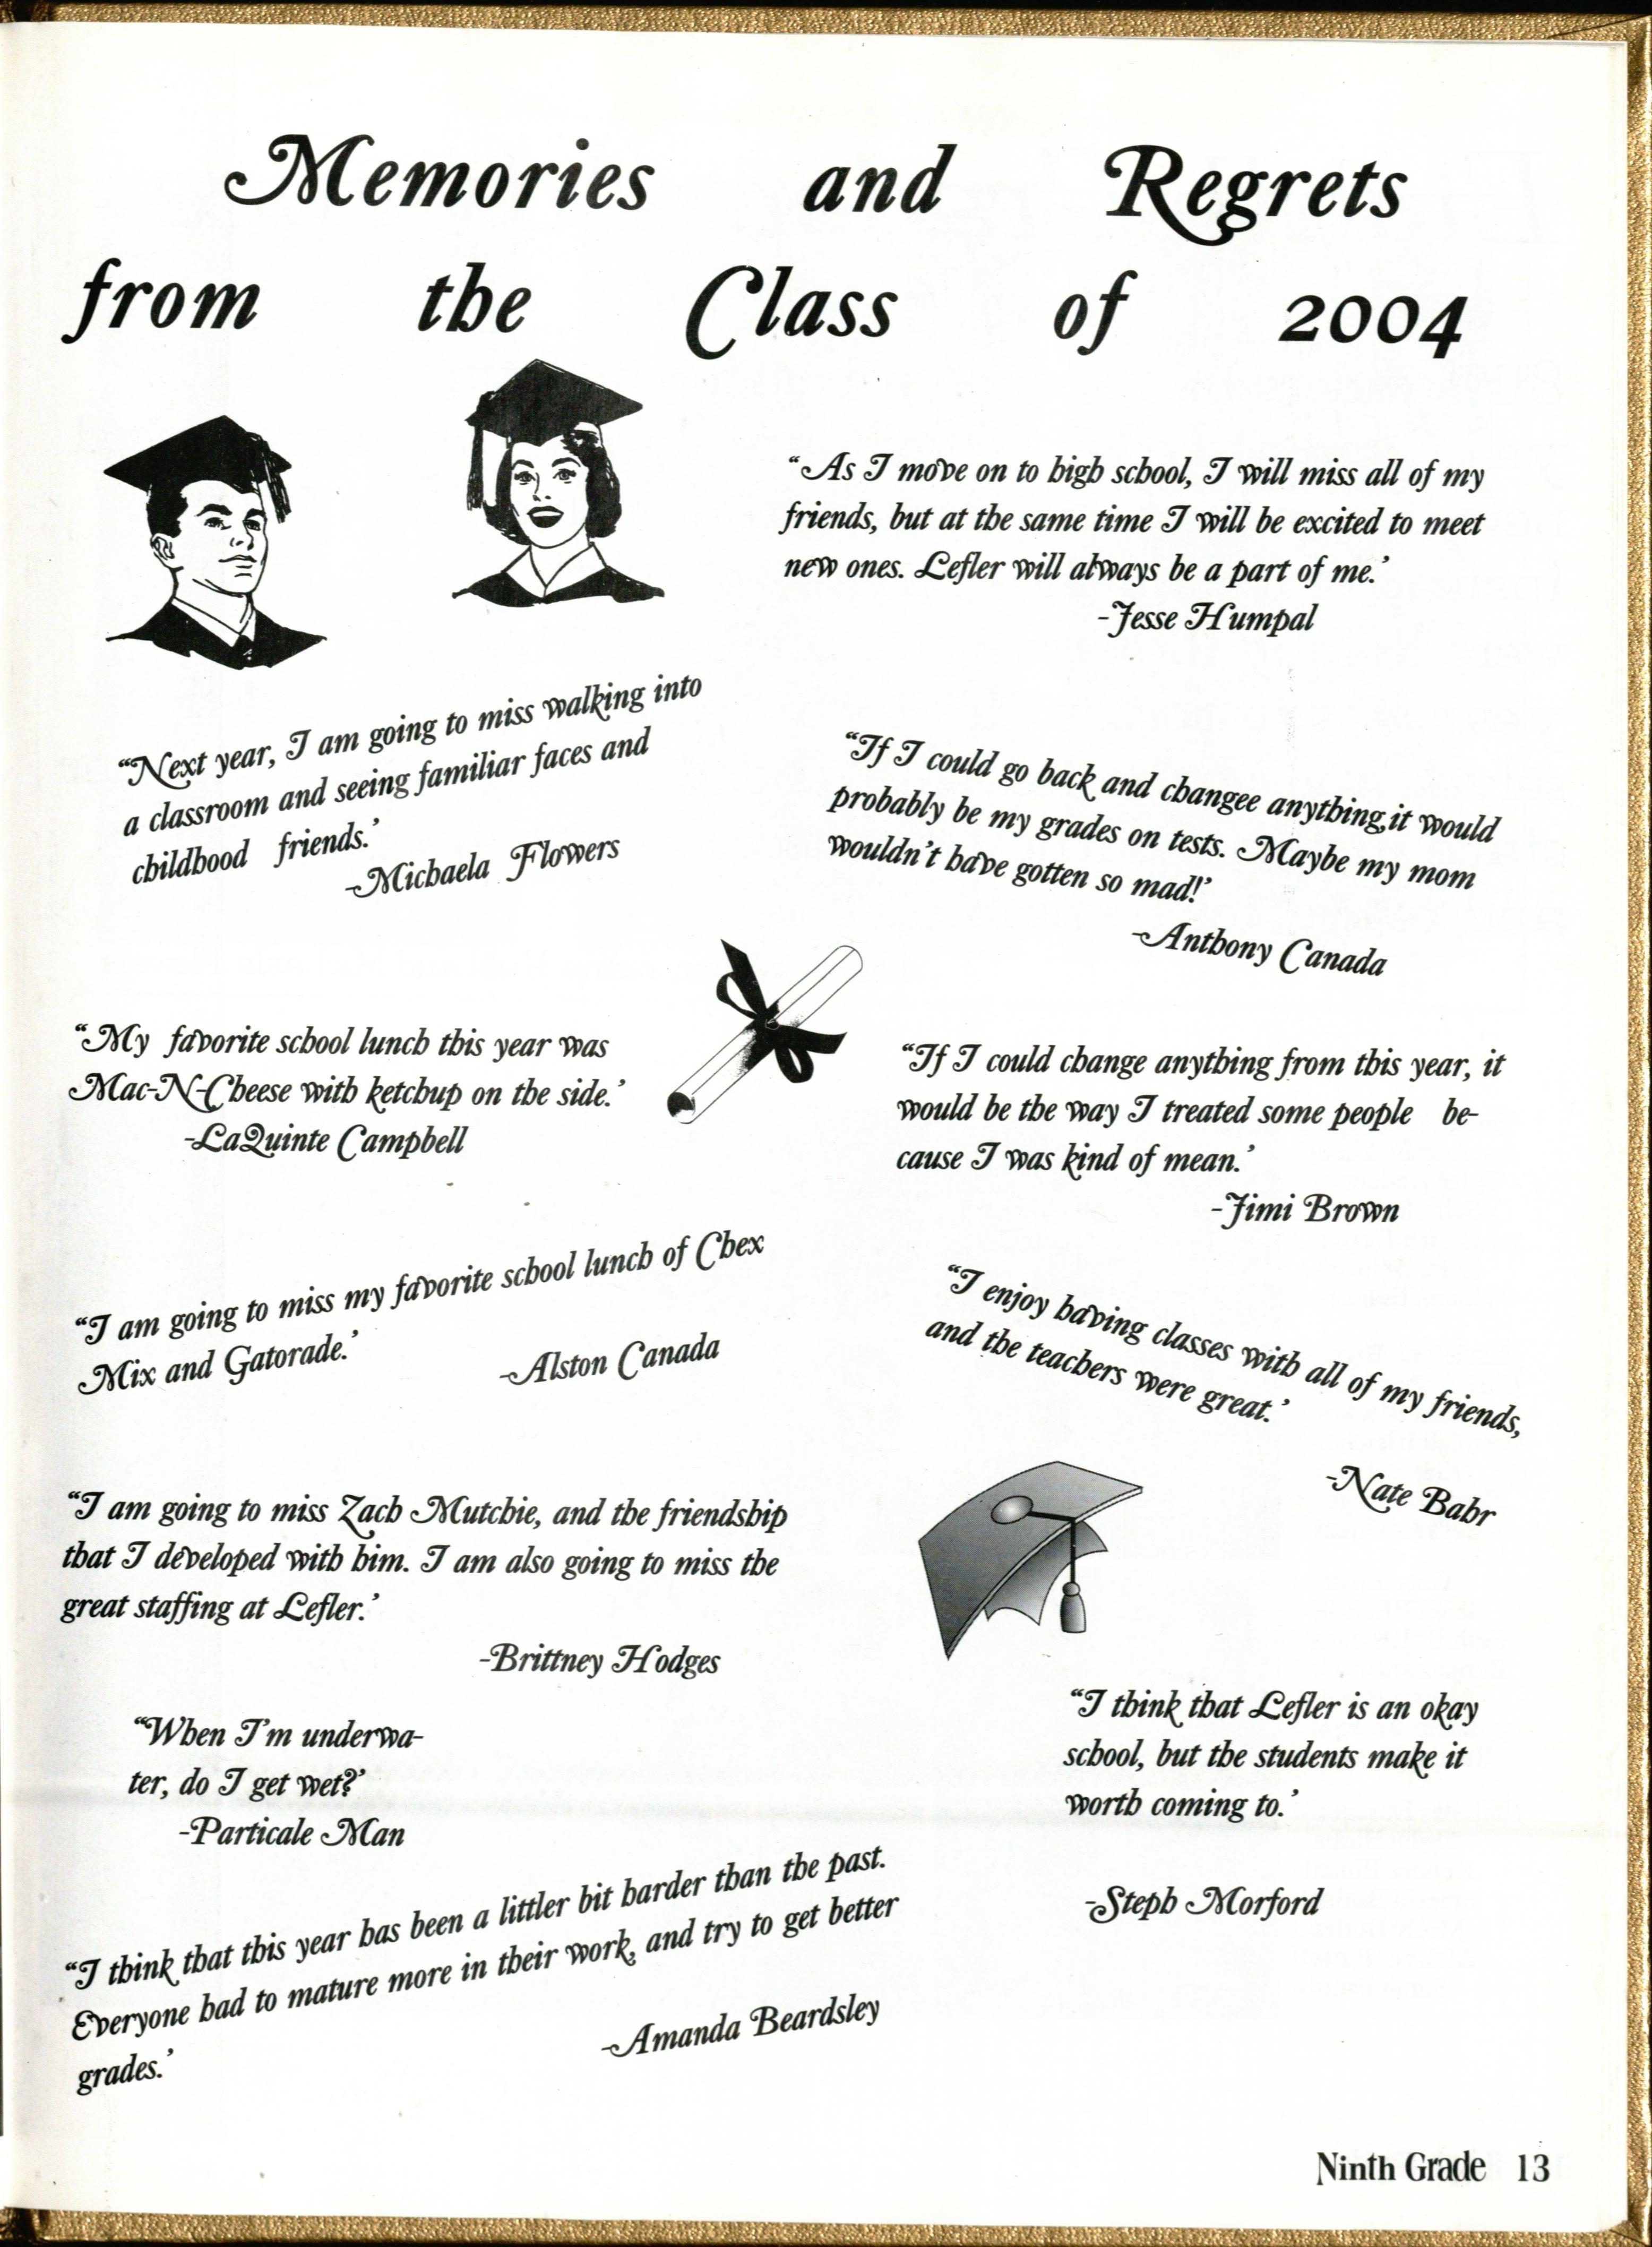 Memories and Regrets
from the Class of 2004
“As I move on to high school, I will miss all of my
friends, but at the same time I will be excited to meet
new ones. Lefler will always be a part of me.’
-Jesse Humpal
“Next year, I am going to miss walking into
a classroom and seeing familiar faces and
childhood friends.’
-Michaela Flowers
“If I could go back and changee anything,it would
probably be my grades on tests. Maybe my mom
wouldn't have gotten so mad!’
-Anthony Canada
“My favorite school lunch this year was
Mac-N-Cheese with ketchup on the side.’
-LaQuinte Campbell
“If I could change anything from this year, it
would be the way I treated some people be-
cause I was kind of mean.’
-Jimi Brown
“I am going to miss my favorite school lunch of Chex
Mix and Gatorade.’
-Alston Canada
“I enjoy having classes with all of my friends,
and the teachers were great.’
-Nate Bahr
“I am going to miss Zach Mutchie, and the friendship
that I developed with him. I am also going to miss the
great staffing at Lefler.’
-Brittney Hodges
“When I'm underwa-
ter, do I get wet?’
-Particale Man
“I think that Lefler is an okay
school, but the students make it
worth coming to.’
-Steph Morford
“I think that this year has been a littler bit harder than the past.
Everyone had to mature more in their work, and try to get better
grades.’
-Amanda Beardsley
Ninth Grade 13